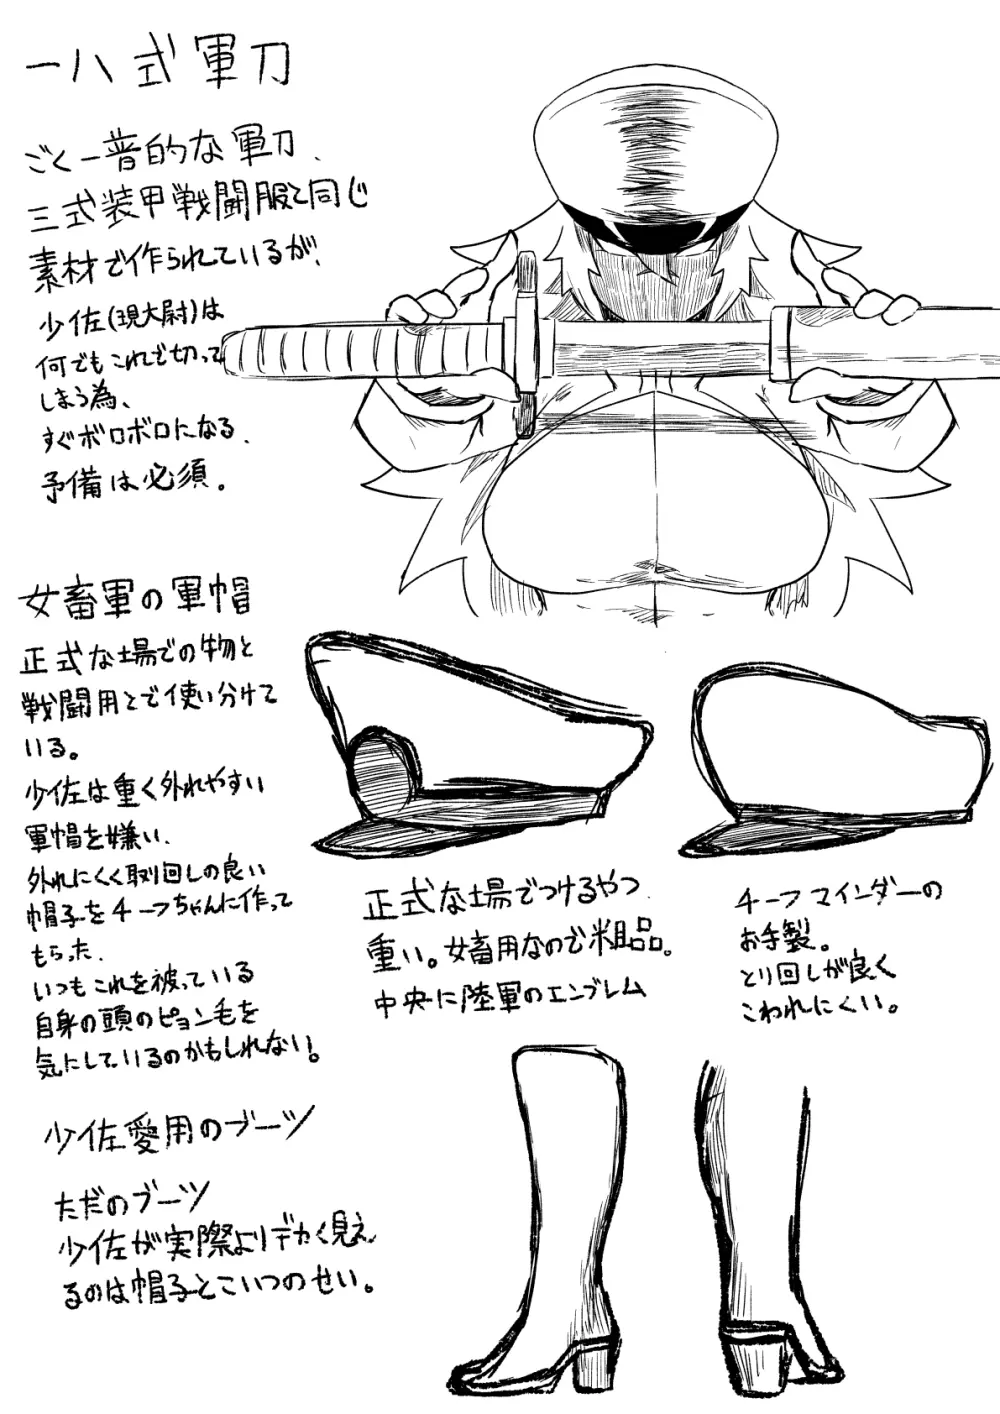 一八式軍刀
ごく一普的な軍刀、
三式装甲戦闘服と同じ
素材で作られているが、
少佐(現大尉)は
何でもこれで切って
しまう為、
すぐボロボロになる、
予備は必須。
女畜軍の軍帽
正式な場での物と
戦闘用とで使い分けて
いる。
少佐は重く外れやすい
軍帽を嫌い、
外れにくく取り回しの良い
帽子をチーフちゃんに作って
もらった、
いつもこれを被っている
自身の頭のピョン毛を
気にしているのかもしれない。
正式な場でつけるやつ、
重い。女畜用なので粗品。
中央に陸軍のエンブレム
チーフマインダーの
お手製。
とり回しが良く
こわれにくい。
少佐愛用のブーツ
ただのブーツ
少佐が実際よりデカく見え
るのは帽子とこいつのせい。